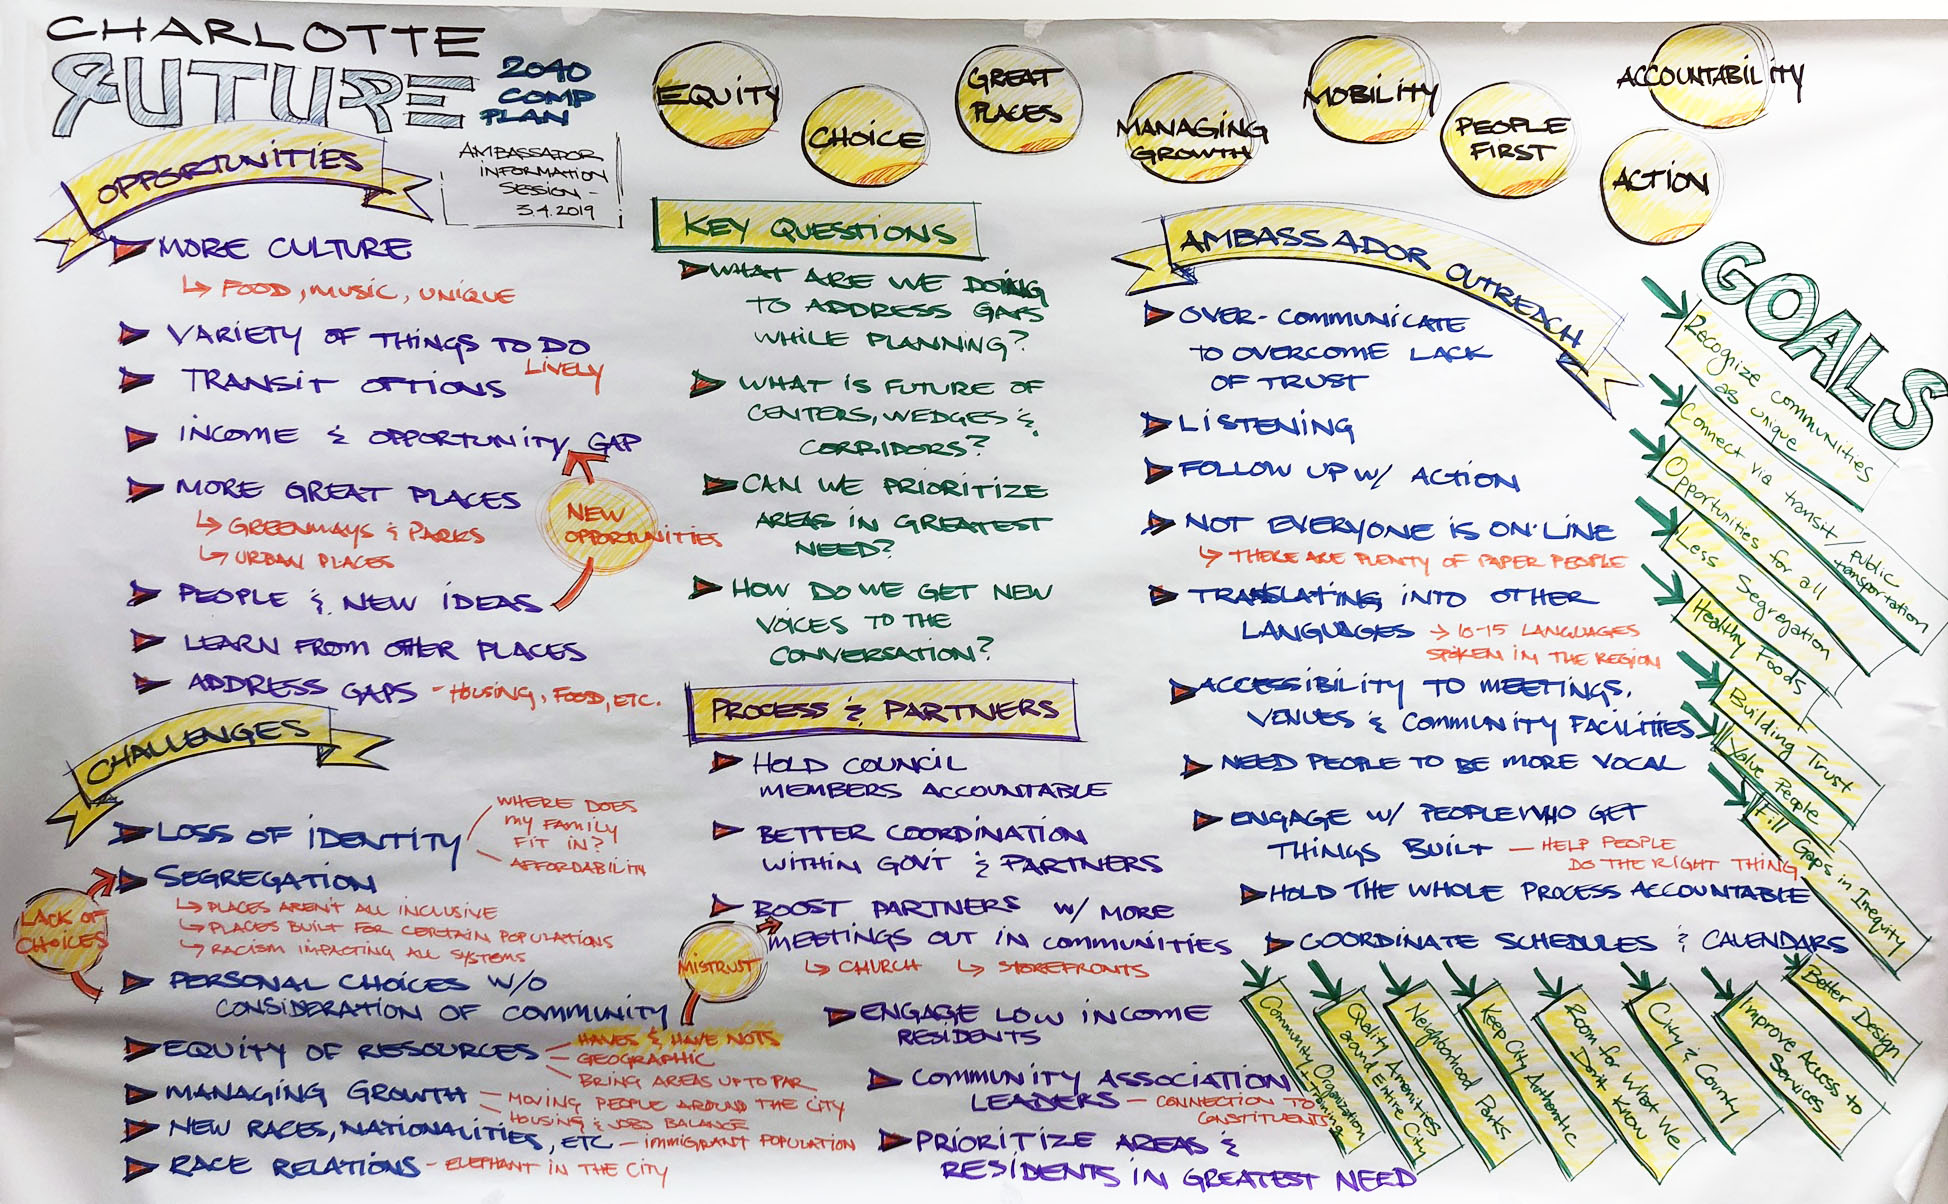 CHARLOTTE
FUTURE
2040
COMP
PLAN
AMBASSADOR
INFORMATION
SESSION -
3.4.2019
EQUITY
CHOICE
GREAT
PLACES
MANAGING
GROWTH
MOBILITY
PEOPLE
FIRST
ACCOUNTABILITY
ACTION
OPPORTUNITIES
MORE CULTURE
FOOD, MUSIC, UNIQUE
VARIETY OF THINGS TO DO
LIVELY
TRANSIT OPTIONS
INCOME & OPPORTUNITY GAP
MORE GREAT PLACES
GREENWAYS & PARKS
URBAN PLACES
NEW
OPPORTUNITIES
PEOPLE & NEW IDEAS
LEARN FROM OTHER PLACES
ADDRESS GAPS - HOUSING, FOOD, ETC.
CHALLENGES
LOSS OF IDENTITY
WHERE DOES
MY FAMILY
FIT IN?
AFFORDABILITY
SEGREGATION
PLACES AREN'T ALL INCLUSIVE
PLACES BUILT FOR CERTAIN POPULATIONS
RACISM IMPACTING ALL SYSTEMS
LACK OF
CHOICES
PERSONAL CHOICES W/O
CONSIDERATION OF COMMUNITY
EQUITY OF RESOURCES
HAVES & HAVE NOTS
GEOGRAPHIC
BRING AREAS UP TO PAR
MANAGING GROWTH
MOVING PEOPLE AROUND THE CITY
HOUSING & JOBS BALANCE
NEW RACES, NATIONALITIES, ETC - IMMIGRANT POPULATION
RACE RELATIONS - ELEPHANT IN THE CITY
KEY QUESTIONS
WHAT ARE WE DOING
TO ADDRESS GAPS
WHILE PLANNING?
WHAT IS FUTURE OF
CENTERS, WEDGES &
CORRIDORS?
CAN WE PRIORITIZE
AREAS IN GREATEST
NEED?
HOW DO WE GET NEW
VOICES TO THE
CONVERSATION?
PROCESS & PARTNERS
HOLD COUNCIL
MEMBERS ACCOUNTABLE
BETTER COORDINATION
WITHIN GOV'T & PARTNERS
BOOST PARTNERS W/ MORE
MEETINGS OUT IN COMMUNITIES
CHURCH STOREFRONTS
MISTRUST
ENGAGE LOW INCOME
RESIDENTS
COMMUNITY ASSOCIATION
LEADERS - CONNECTION TO
CONSTITUENTS
PRIORITIZE AREAS &
RESIDENTS IN GREATEST NEED
AMBASSADOR OUTREACH
OVER-COMMUNICATE
TO OVERCOME LACK
OF TRUST
LISTENING
FOLLOW UP W/ ACTION
NOT EVERYONE IS ON-LINE
THERE ARE PLENTY OF PAPER PEOPLE
TRANSLATING INTO OTHER
LANGUAGES → 10-15 LANGUAGES
SPOKEN IN THE REGION
ACCESSIBILITY TO MEETINGS,
VENUES & COMMUNITY FACILITIES
NEED PEOPLE TO BE MORE VOCAL
ENGAGE W/ PEOPLE WHO GET
THINGS BUILT - HELP PEOPLE
DO THE RIGHT THING
HOLD THE WHOLE PROCESS ACCOUNTABLE
COORDINATE SCHEDULES & CALENDARS
GOALS
Recognize communities
as unique
Connect via transit/public
transportation
Opportunities for all
Less Segregation
Healthy Foods
Building Trust
Value People
Fill Gaps in Inequity
Better Design
Improve Access to
Services
City & County
Room for What We
Don't Know
Keep City Authentic
Neighborhood Parks
Quality Amenities
around Entire City
Community Organization
+ Training